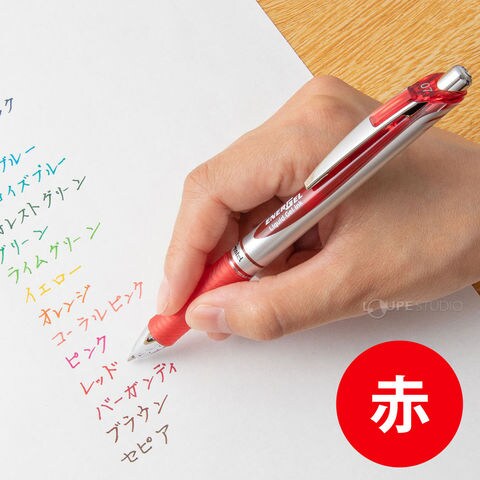 ク
ブルー
イズブルー
ォレストグリーン
グリーン
ライムグリーン
イエロー
オレンジ
コーラルピンク
ピンク
レッド
バーガンディ
ブラウン
セピア
07
ENERGEL
Liquid Gel Ink
LOUPE STUDIO
赤